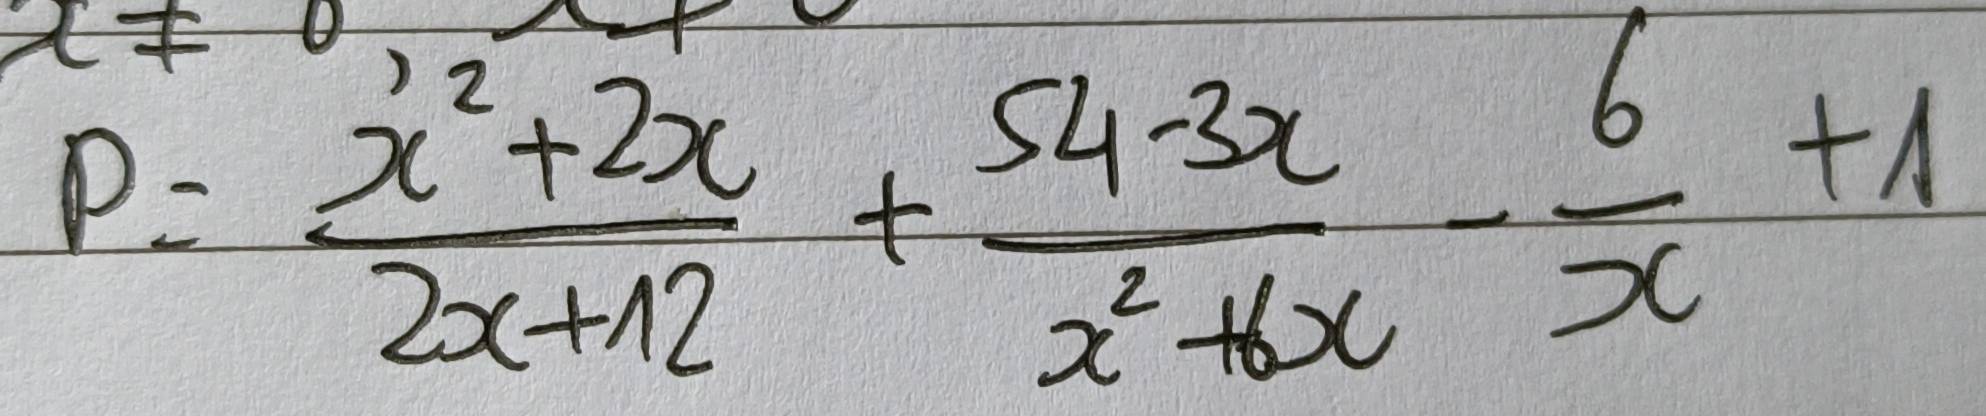 x ≠ 6
P = (x² + 2x)/(2x + 12) + (54 - 3x)/(x² + 6x) - 6/x + 1